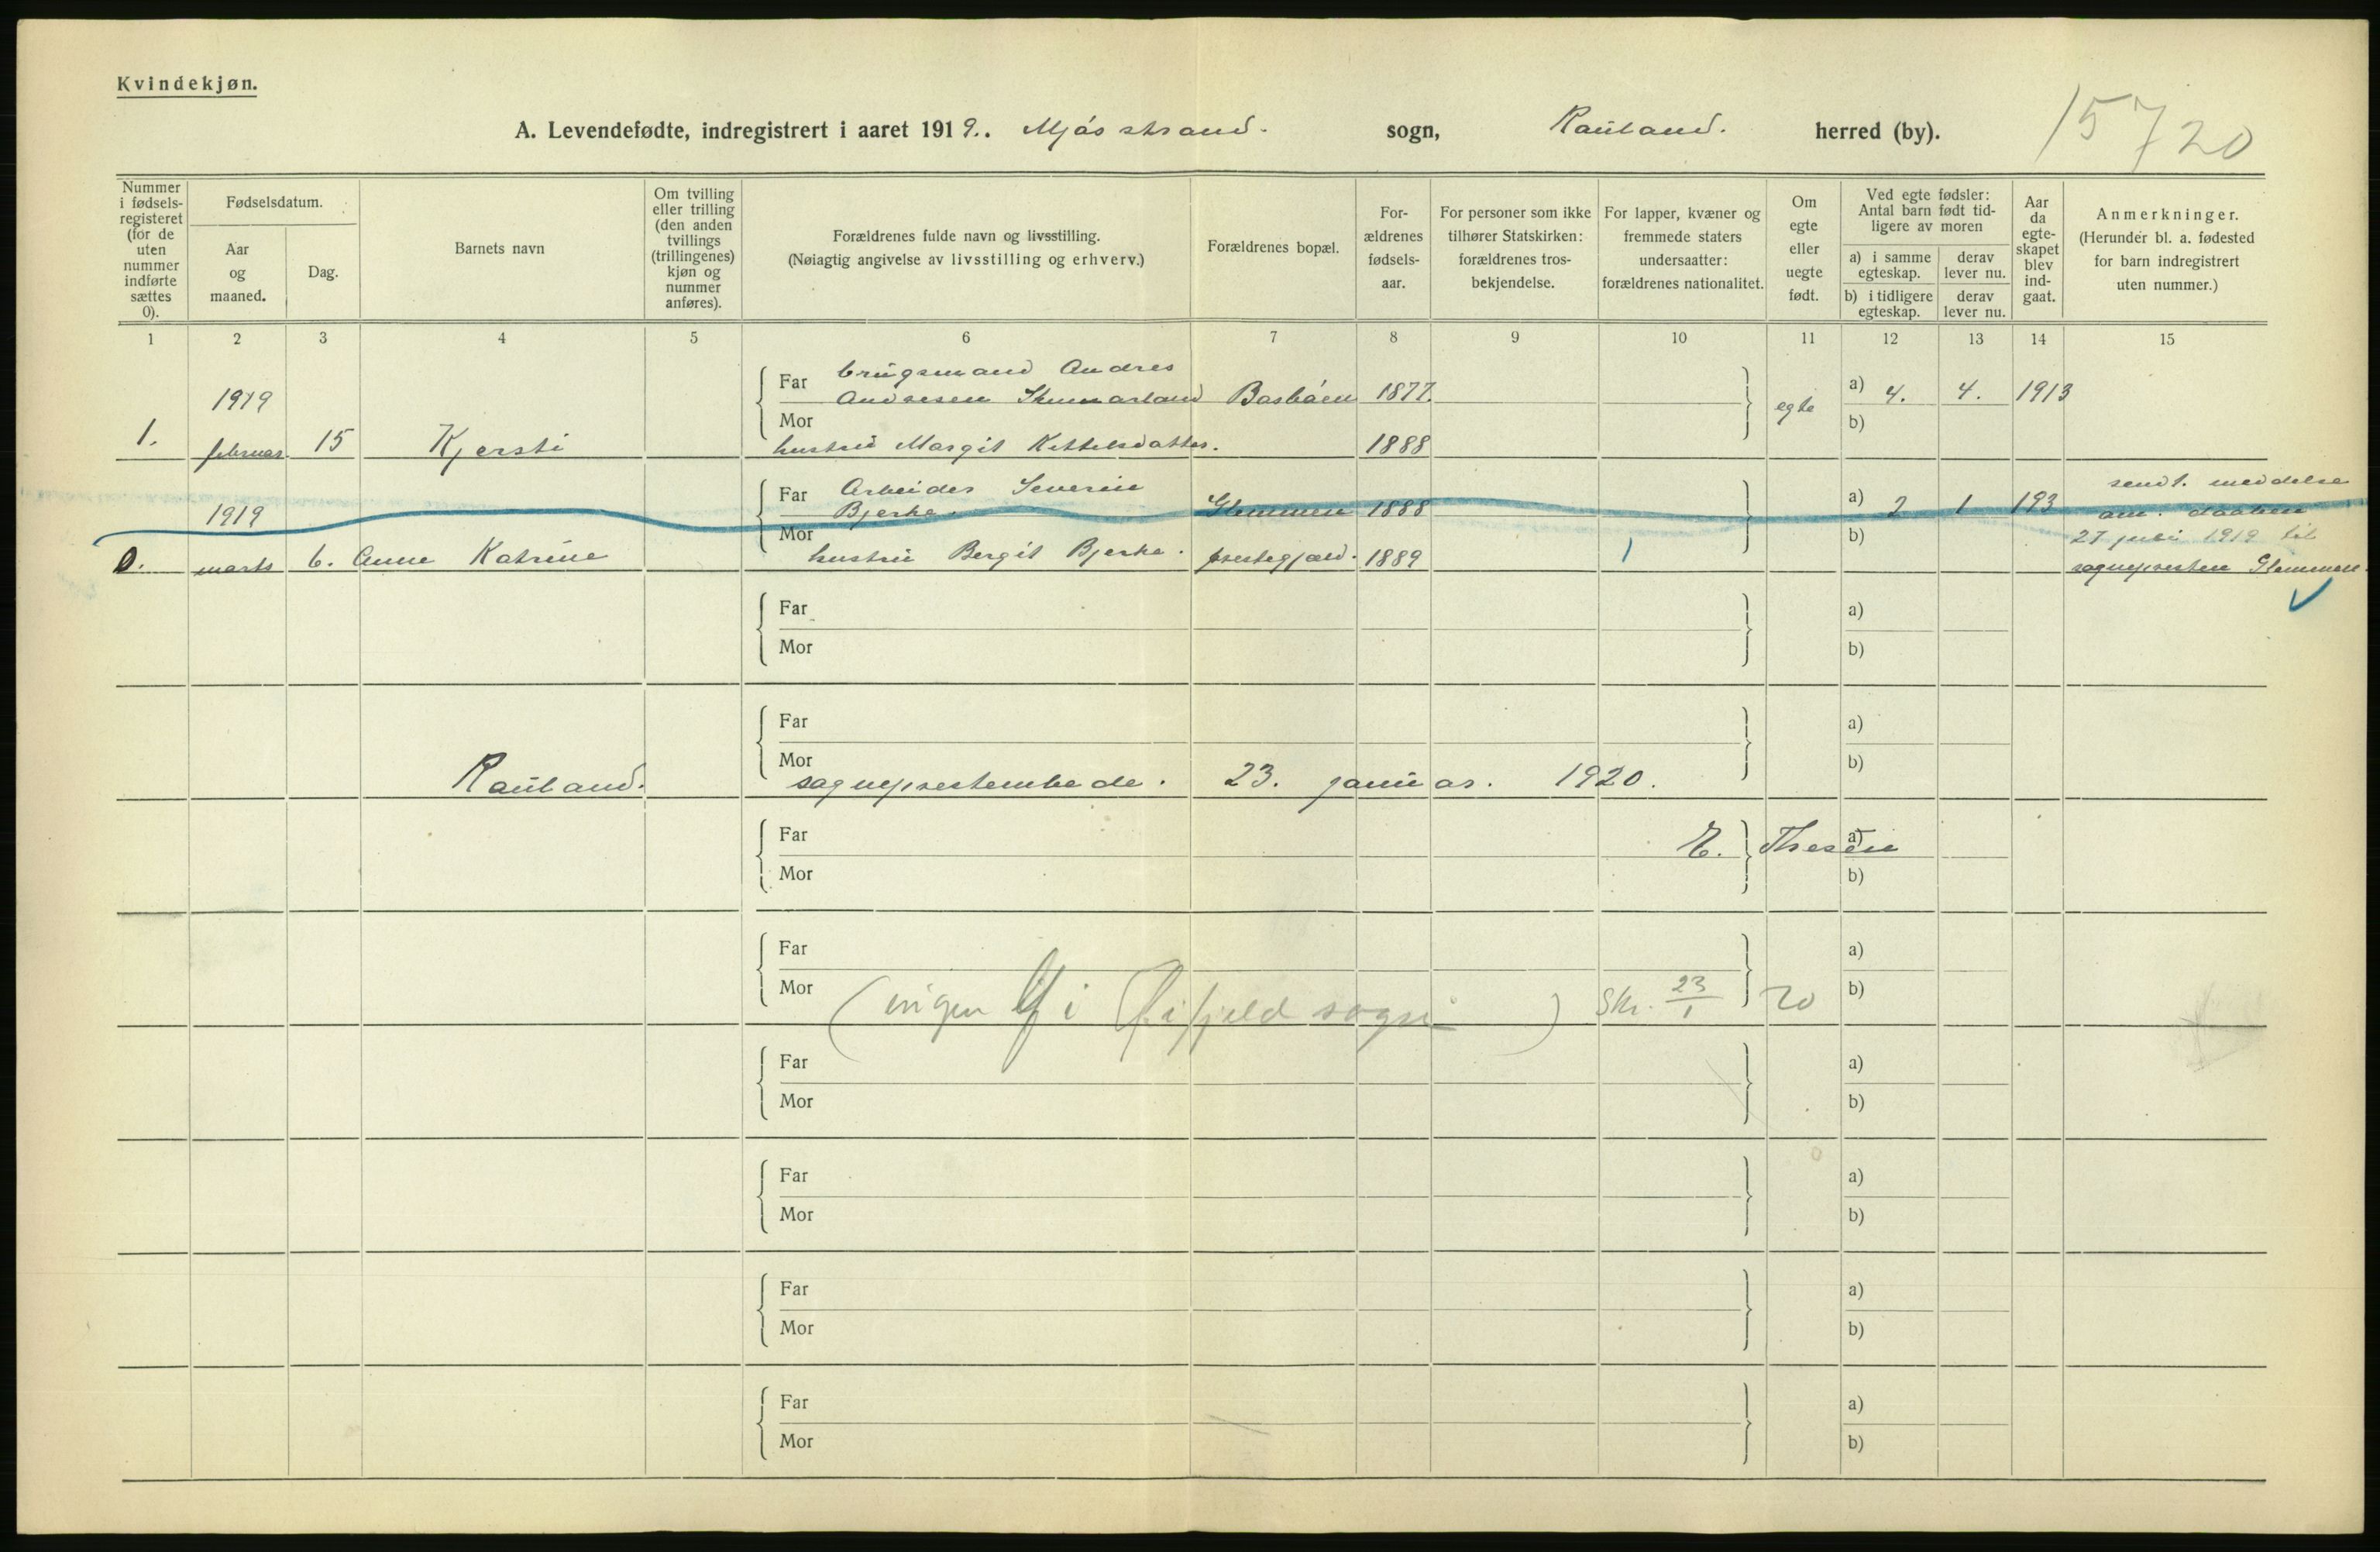 Kvindekjøn.
A. Levendefødte, indregistrert i aaret 1919.. Mjósstrand. sogn, Rauland. herred (by).
15720
Nummer i fødsels-registeret (for de uten nummer indførte sættes 0).
Fødselsdatum.
Aar og maaned.
Dag.
Barnets navn
Om tvilling eller trilling (den anden tvillings (trillingenes) kjøn og nummer anføres).
Forældrenes fulde navn og livsstilling.
(Nøiagtig angivelse av livsstilling og erhverv.)
Forældrenes bopæl.
For-ældrenes fødsels-aar.
For personer som ikke tilhører Statskirken: forældrenes tros-bekjendelse.
For lapper, kvæner og fremmede staters undersaatter: forældrenes nationalitet.
Om egte eller uegte født.
Ved egte fødsler: Antal barn født tid-ligere av moren
a) i samme egteskap.
derav lever nu.
b) i tidligere egteskap.
derav lever nu.
Aar da egte-skapet blev ind-gaat.
Anmerkninger.
(Herunder bl. a. fødested for barn indregistrert uten nummer.)
1 2 3 4 5 6 7 8 9 10 11 12 13 14 15
1919
Far brugsmand Andres
Andresen Basbóen 1877. egte a) 4. 4. 1913
Mor b)
1. februar 15 Kjersti hustru Margit Kettelsdatter. 1888
1919
Far Arbeider Severin
Bjerke. Glemmen 1888 a) 2 1 193
sendt. meddelse
om. daaben
Mor b)
27 juli 1919 til
0. marts 6. Anne Katrine hustru Bergit Bjerke. prestegjæld. 1889 1
sognepresten Glemmen.
Far a)
Mor b)
Far a)
Mor b)
Rauland. sogneprestembede. 23. januar. 1920.
Far E. Thesen a)
Mor b)
Far a)
Mor b)
(ingen lf i sogn) Skr. 23/1 20
Far a)
Mor b)
Far a)
Mor b)
Far a)
Mor b)
Far a)
Mor b)